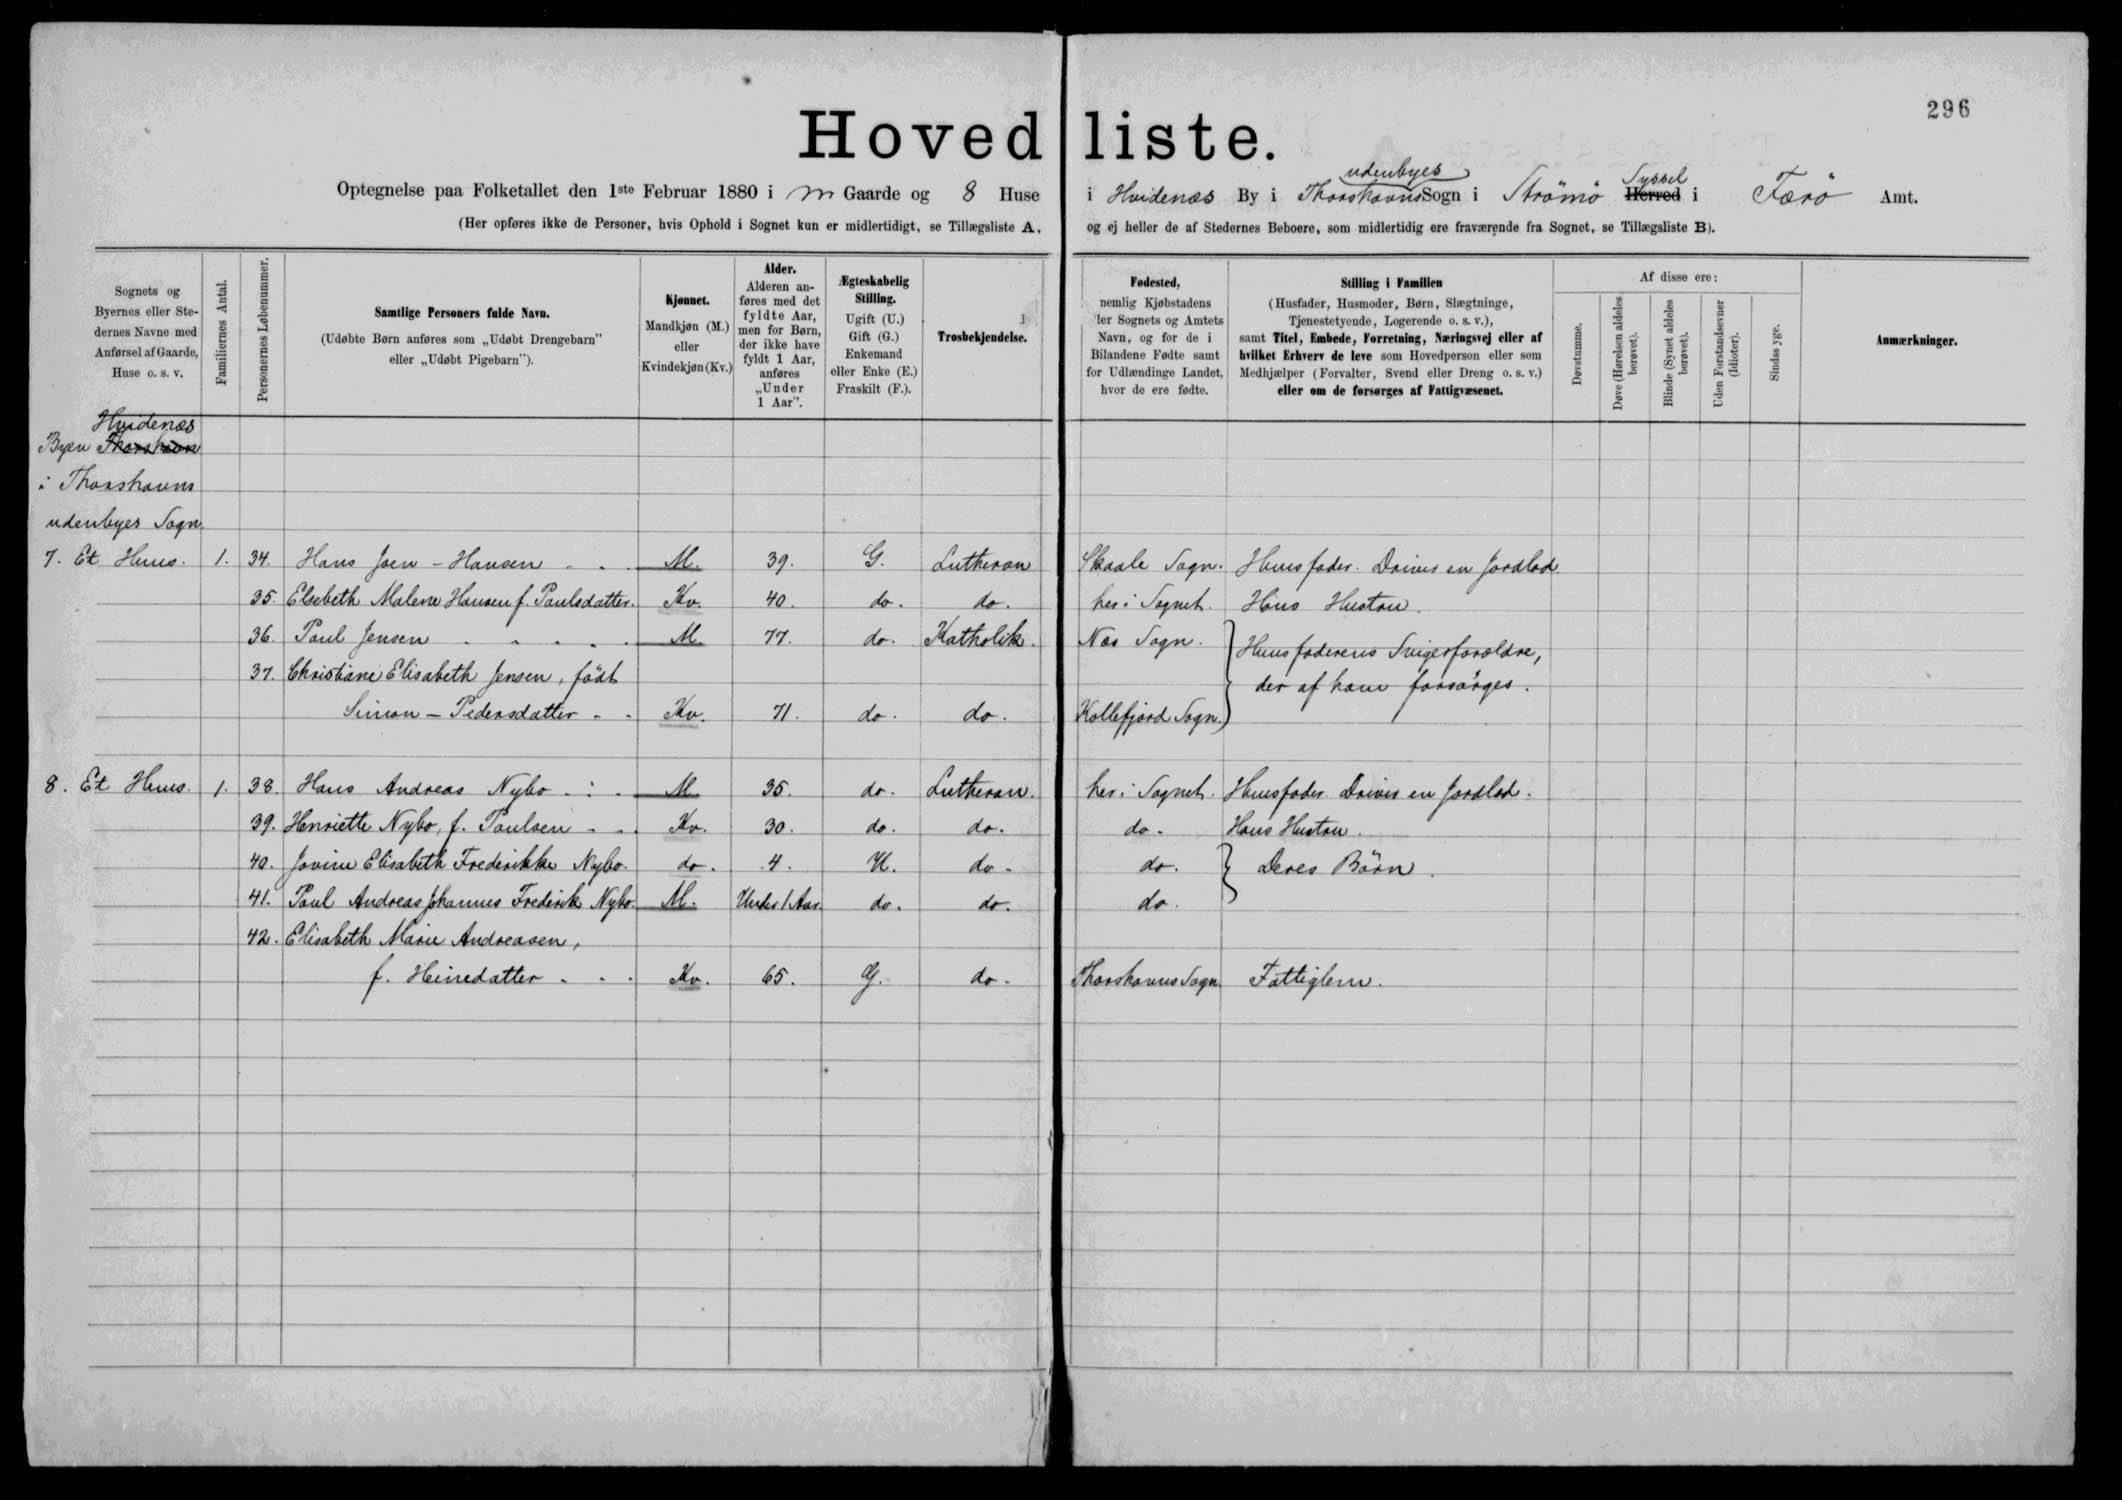 296
Hovedliste.
Optegnelse paa Folketallet den 1ste Februar 1880 i m Gaarde og 8 Huse i Hvidenæs By i Thorshavns udenbyes Sogn i Strömö Herred Syssel i Færö Amt.
(Her opføres ikke de Personer, hvis Ophold i Sognet kun er midlertidigt, se Tillægsliste A, og ej heller de af Stedernes Beboere, som midlertidig ere fraværende fra Sognet, se Tillægsliste B).
Sognets og
Byernes eller Ste-
dernes Navne med
Anførsel af Gaarde,
Huse o. s. v.
Familiernes Antal.
Personernes Løbenummer.
Samtlige Personers fulde Navn.
(Udøbte Børn anføres som „Udøbt Drengebarn"
eller „Udøbt Pigebarn").
Kjønnet.
Mandkjøn (M.)
eller
Kvindekjøn (Kv.)
Alder.
Alderen an-
føres med det
fyldte Aar,
men for Børn,
der ikke have
fyldt 1 Aar,
anføres
„Under
1 Aar".
Ægteskabelig
Stilling.
Ugift (U.)
Gift (G.)
Enkemand
eller Enke (E.)
Fraskilt (F.).
Trosbekjendelse.
Fødested,
nemlig Kjøbstadens
ler Sognets og Amtets
Navn, og for de i
Bilandene Fødte samt
for Udlændinge Landet,
hvor de ere fødte.
Stilling i Familien
(Husfader, Husmoder, Børn, Slægtninge,
Tjenestetyende, Logerende o. s. v.),
samt Titel, Embede, Forretning, Næringsvej eller af
hvilket Erhverv de leve som Hovedperson eller som
Medhjælper (Forvalter, Svend eller Dreng o. s. v.)
eller om de forsørges af Fattigvæsenet.
Af disse ere:
Døvstumme.
Døve (Hørelsen aldeles
berøvet).
Blinde (Synet aldeles
berøvet).
Uden Forstandsevner
(Idioter).
Sindssyge.
Anmærkninger.
Hvidenæs
Byen Thorshavn
i Thorshavns
udenbyes Sogn.
7. Et Huus. 1. 34. Hans Joen - Hansen M. 39. G. Lutheran Skaale Sogn. Huusfader. Driver en Jordlod.
35. Elsebeth Malene Hansen f. Poulsdatter. Kv. 40. do. do. her i Sognet. Hans Hustru.
36. Poul Jensen M. 77. do. Katholik. Næs Sogn. Huusfaderens Svigerforældre,
37. Christiane Elisabeth Jensen, födt der af ham forsörges.
Simon - Pedersdatter Kv. 71. do. do. Kollefjord Sogn.
8. Et Huus. 1. 38. Hans Andreas Nybo M. 35. do. Lutheran. her i Sognet. Huusfader. Driver en Jordlod.
39. Henriette Nybo, f. Poulsen Kv. 30. do. do. do. Hans Hustru.
40. Jovine Elisabeth Frederikke Nybo. do. 4. U. do. do. Deres Börn.
41. Poul Andreas Johannes Frederik Nybo. M. Under 1 Aar. do. do. do.
42. Elisabeth Marie Andreasen,
f. Heinedatter Kv. 65. G. do. Thorshavns Sogn. Fattiglem.